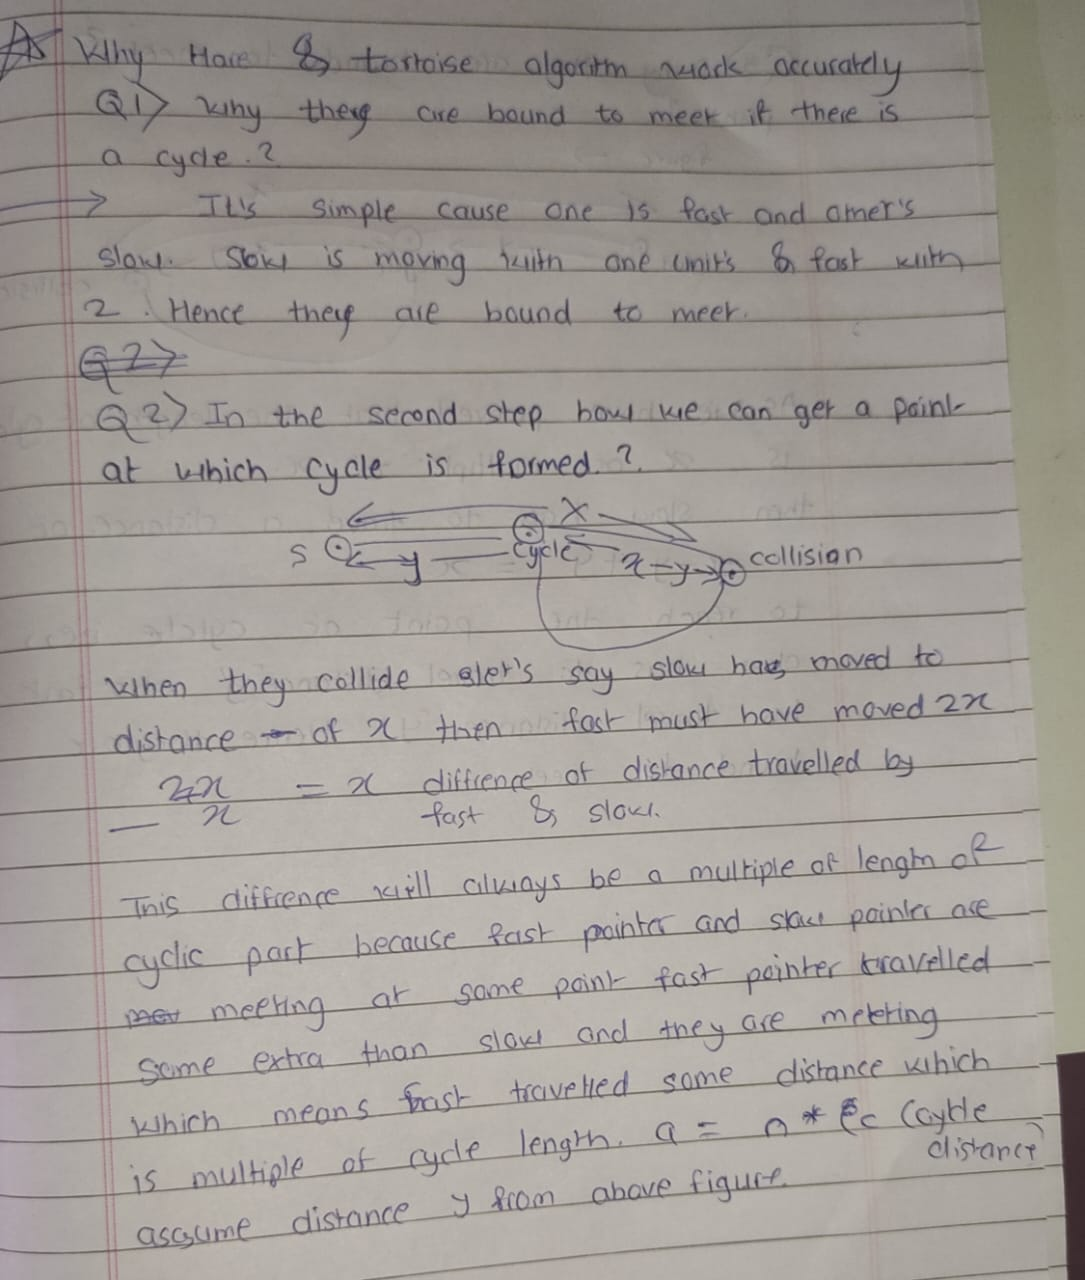 Why Hare & tortoise algorithm work accurately
Q1) Why they are bound to meet if there is
a cycle.?
→ It's simple cause one is fast and other's
slow. Slow is moving with one unit's & fast with
2. Hence they are bound to meet.
Q2>
Q2) In the second step how we can get a point
at which cycle is formed.?
x
S y cycle x-y collision
When they collide let's say slow has moved to
distance of x then fast must have moved 2x
2x = x diffrence of distance travelled by
- x fast & slow.
This diffrence will always be a multiple of length of
cyclic part because fast pointer and slow pointer are
meeting at same point fast pointer travelled
some extra than slow and they are meeting
which means fast travelled some distance which
is multiple of cycle length. a = n * c (cycle
distance)
assume distance y from above figure.